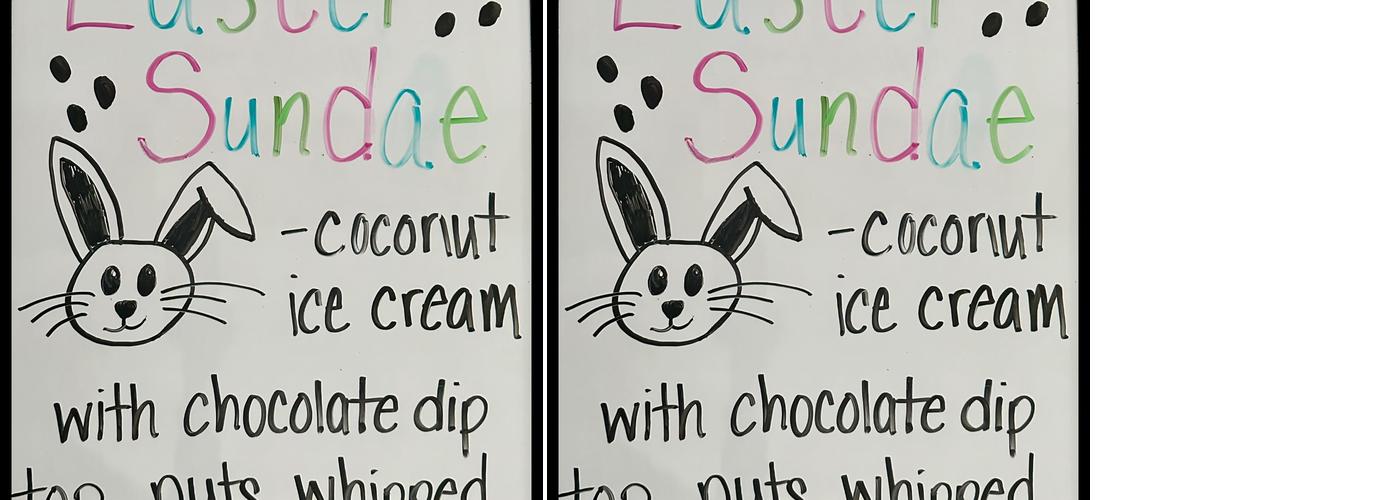 Easter
Sundae
-coconut
ice cream
with chocolate dip
top nuts whipped
Easter
Sundae
-coconut
ice cream
with chocolate dip
top nuts whipped